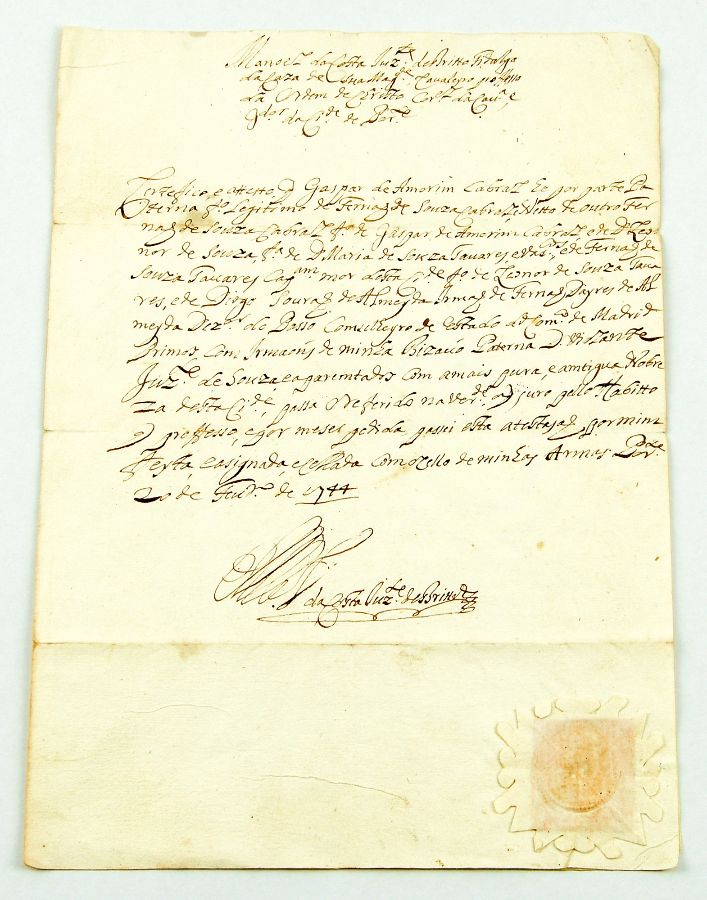 Manoel da Costa Juz.te de Britto Fidalgo
da Caza de Sua Mag.e Cavaleyro professo
da Ordem de Cristo Cor.el da Cav.a, e
g.dor da Ci.de de Por.e
Certefico, e attesto q Gaspar de Amorim Cabral he por parte Pa
terna f.o Legitimo de Fernaõ de Souza Cabral e Netto de outro Fer
naõ de Souza Cabral f.o de Gaspar de Amorim Cabral, e de D. Leo
nor de Souza, f.a de D. Maria de Souza Tavares, e de Fernaõ de
Souza Tavares Cap.am mor desta Ci.de f.o de Leonor de Souza Tava
res, e de Diogo de Almeyda Irmaõ de Fernaõ Dayres de Al
meyda Dez.or do Passo Comselheyro de Estado de Madrid
Primos, com Irmaoñs de minha Bizavo Paterna D. Violante
Juz.te de Souza e aparentados com a mais pura, e amtigua Nobre
za desta Ci.de, passa o Referido na verd.e o q juro pello Habitto
q professo, e por me ser pedida passei esta atestasaõ, por mim
feyta, e asignada, e cellada com o cello de minhas Armas Por.e
20 de Feur.o de 1744
da Costa Juz.te de Britto